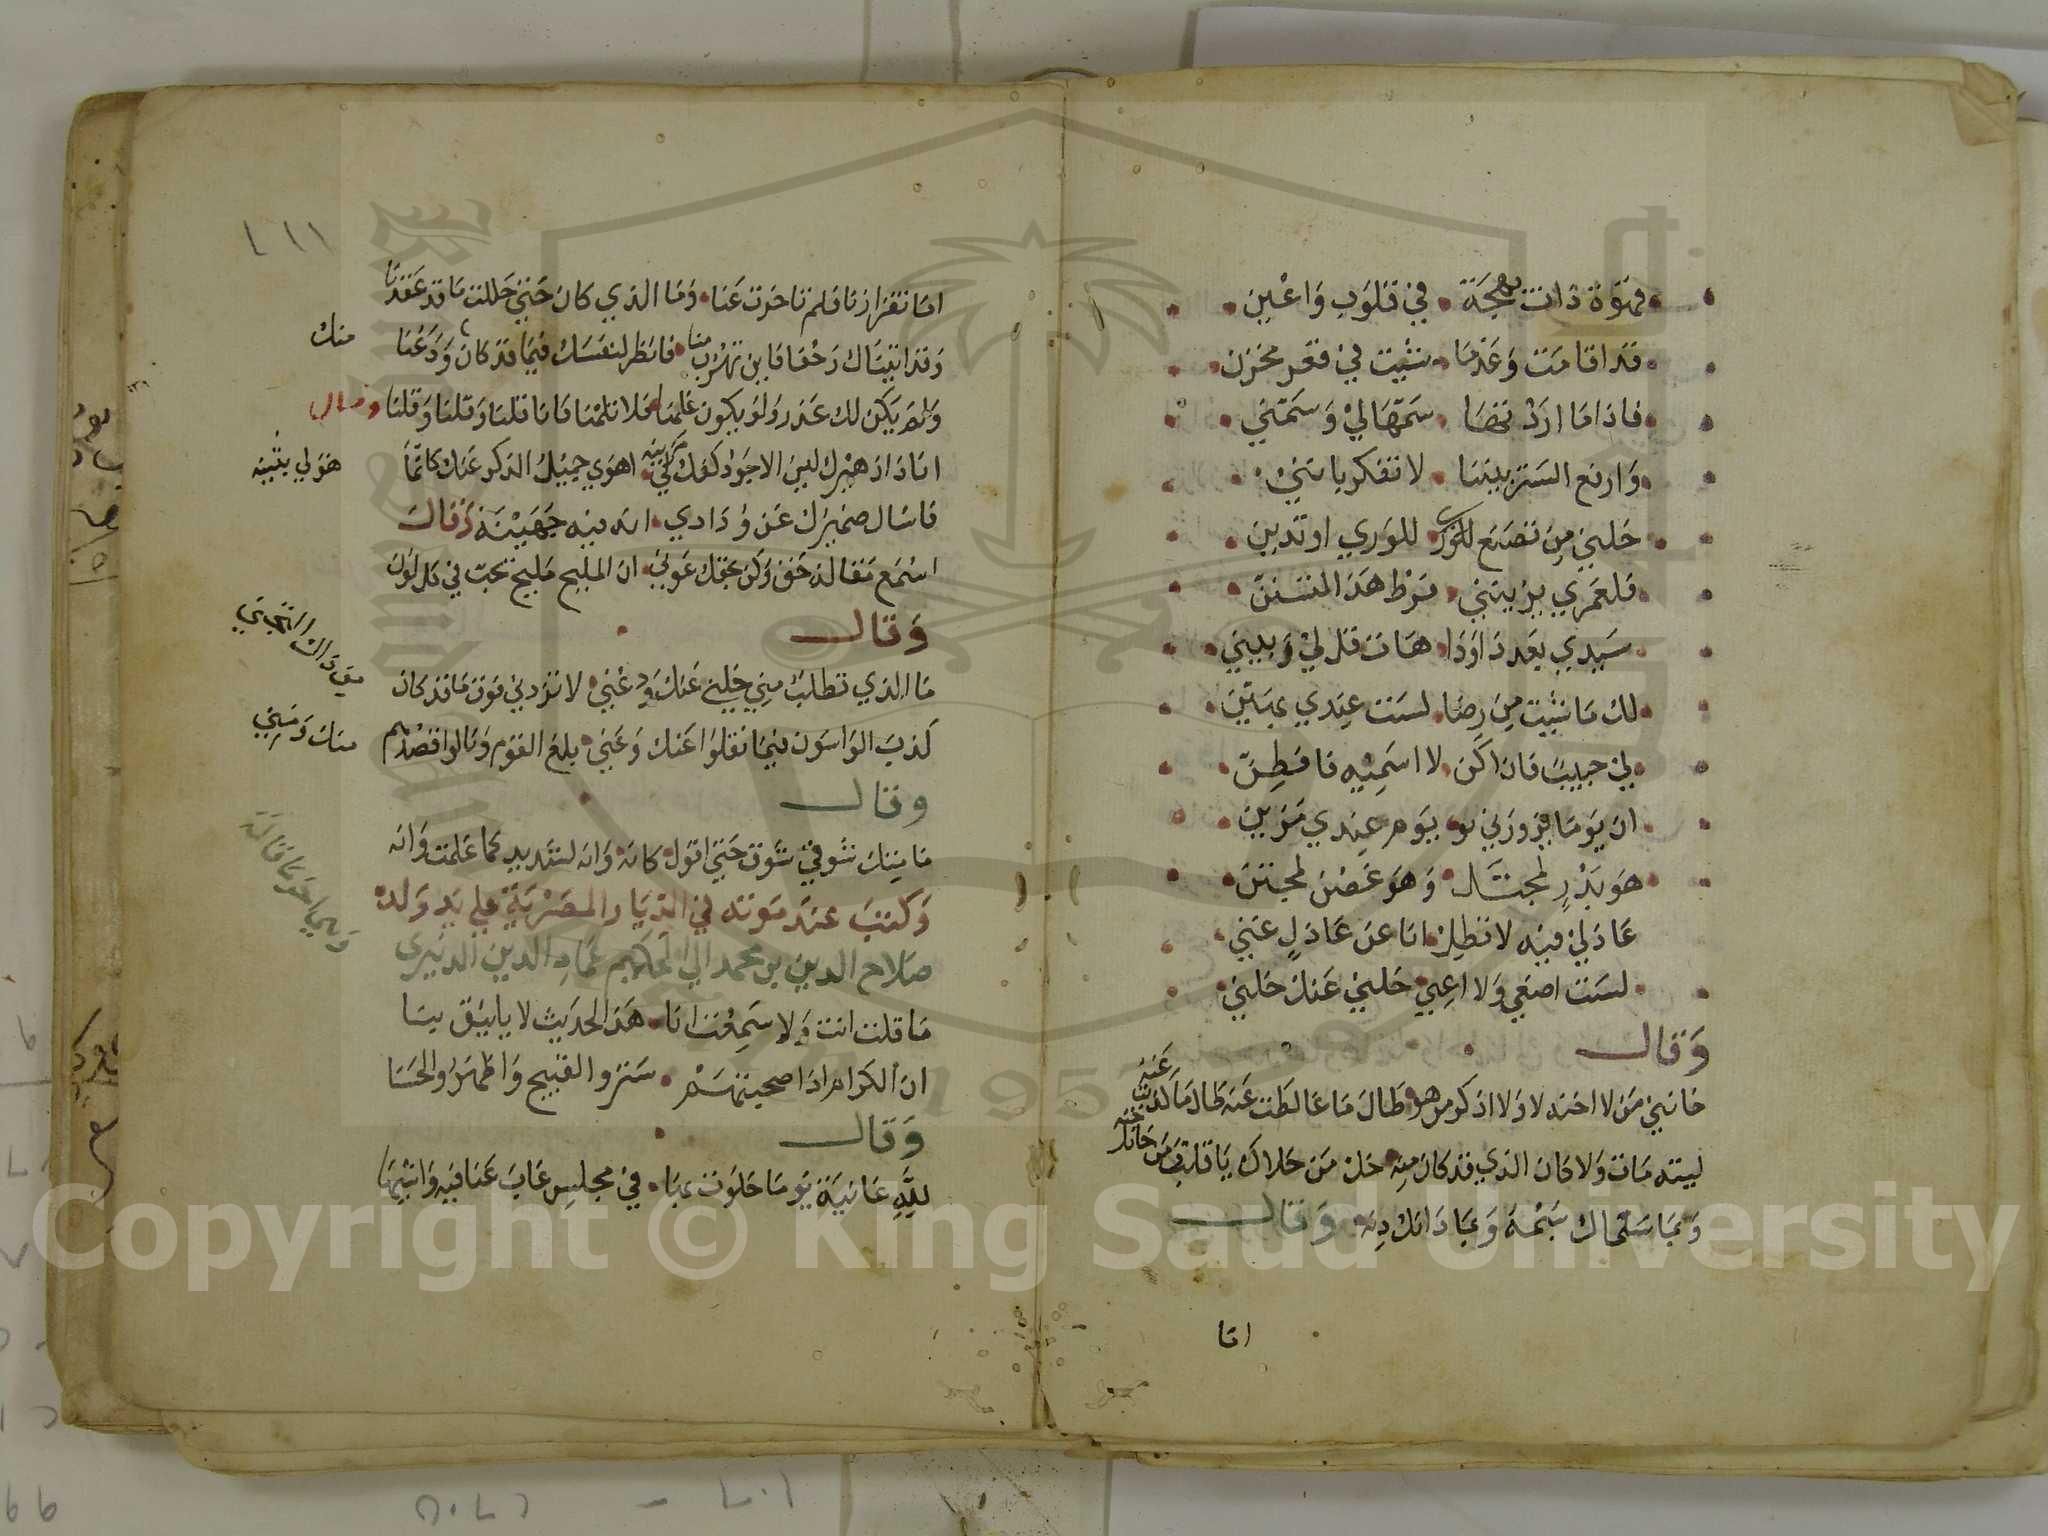 قهوة ذات بهجة في قلوب واعين
قد اقامت وعندما شيت في قعر مخزن
فاذا ما اردتها سمتها لي وسمتني
وارفع الستر بيننا لا تفكر يا بني
خلني من تصنع للوري او تدين
فلعمري بريبني فرط هذا التسنن
سيدي بعد ذا وذا هات قل لي وبيني
لك ما شيت من رضا لست عندي بهين
لي حبيب فان اكن لا اسميه فافطن
ان يوما يزورني يوم عندي مزين
هو بدر لمجتل وهو غصن لمجتن
عاذلي فيه لا تطل انا عن عاذل غني
لست اصغي ولا اعي خلني عنك خلني
وقال
خانني من لا اخنه لا ولا اذكر من هو طال ما غالطت عنه طال ما كذبت عنه
ليته مات ولا كان الذي قد كان منه خل من خلاك يا قلبي من خانك خنه
وبما سماك سمه وبما دانك دنه وقال
اما
اما تقرر انا فلم تاخرت عنا وما الذي كان حتى حللت ما قد عقدنا
وقد اتيناك زحفا فاين تهرب منا فانظر لنفسك فيما قد كان ودعنا
منك
ولم يكن لك عذر ولو يكون علمنا فلا تلمنا فانا قلنا وقلنا وقلنا وقال
اهوي جميل الذكر عنك كانما
هو لي بثينه
فاسال ضميرك عن ودادي انه فيه جهينة وقال
اسمع مقالة حق وكن بحقك عوني ان المليح مليح يحب في كل لون
وقال
ما الذي تطلب مني خلني عنك ودعني لا تزدني فوق ما قد كان
منك ومني
كذب الواشون فيما نقلوا عنك وعني بلغ القوم ونالوا قصدهم
وقال
ما ينك شوقي شوق حتي اقول كانه وانه لشديد كما علمت وانه
وكتب عند موته في الديار المصرية علي يد ولده
صلاح الدين بن محمد الي الحكيم عماد الدين الدنيري
ما قلت انت ولا سمعت انا هذا الحديث لا يليق بنا
ان الكرام اذا صحبتهم ستروا القبيح واظهروا الحسنا
وقال
لله غانية يوما خلوت بها في مجلس غاب عنا فيه واشيها
Copyright © King Saud University